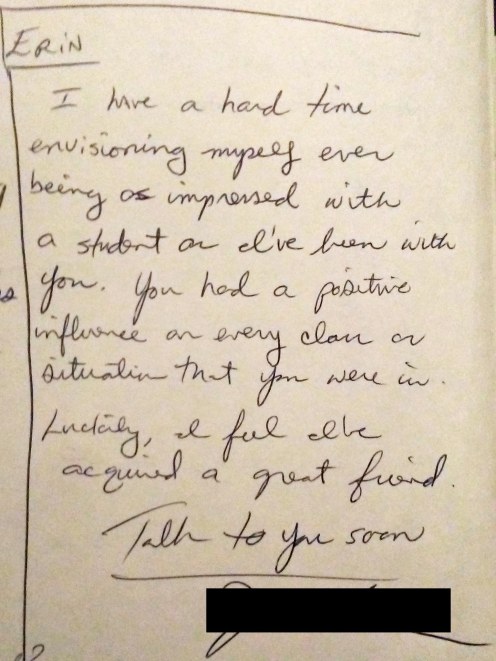 ERIN
I have a hard time
envisioning myself ever
being as impressed with
a student as I've been with
you. You had a positive
influence on every class or
situation that you were in.
Luckily, I feel I've
acquired a great friend.
Talk to you soon